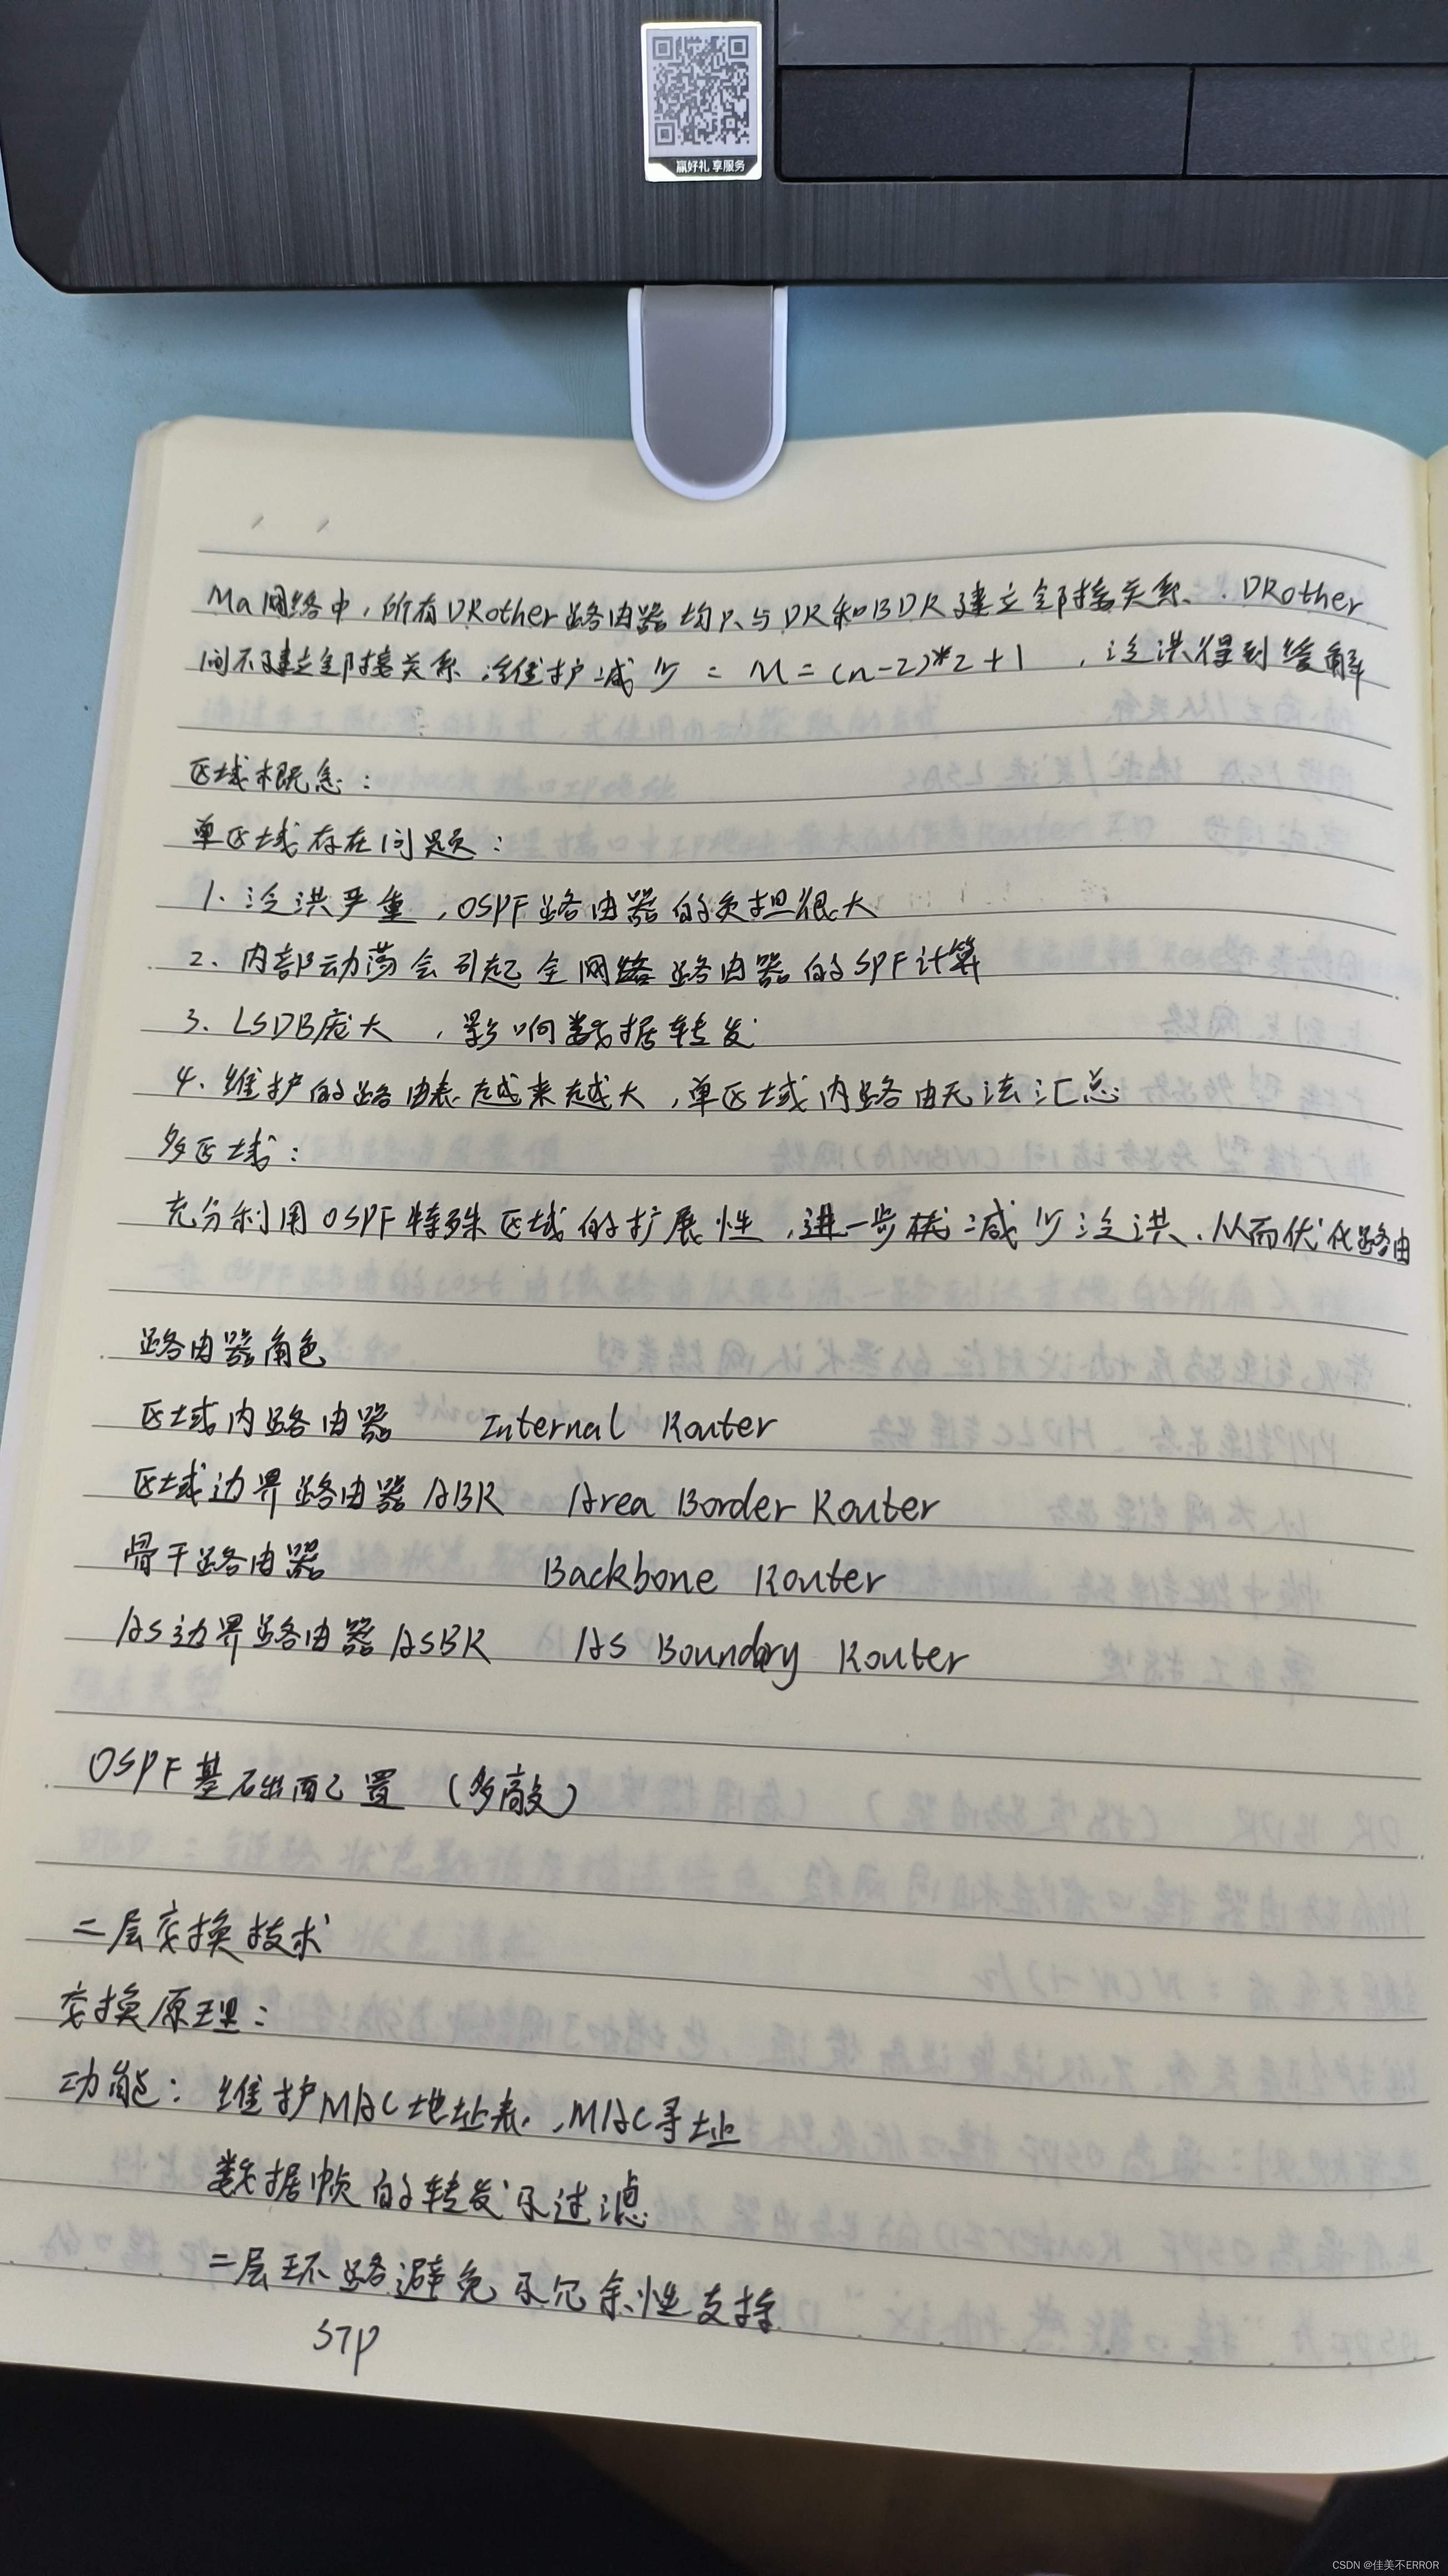 赢好礼 享服务
Ma网络中，所有DRother路由器均只与DR和BDR建立邻接关系、DRother
间不建立邻接关系，维护减少 = M=(n-2)*2+1 ，泛洪得到缓解
区域概念：
单区域存在问题：
1. 泛洪严重，OSPF路由器的负担很大
2. 内部动荡会引起全网络路由器的SPF计算
3. LSDB庞大，影响数据转发
4. 维护的路由表越来越大，单区域内路由无法汇总
多区域：
充分利用OSPF特殊区域的扩展性，进一步 减少泛洪、从而优化路由
路由器角色
区域内路由器 Internal Router
区域边界路由器ABR Area Border Router
骨干路由器 Backbone Router
AS边界路由器ASBR AS Boundary Router
OSPF基础配置（多敲）
二层交换技术
交换原理：
功能：维护MAC地址表，MAC寻址
数据帧的转发及过滤
二层环路避免及冗余性支持
STP
CSDN @佳美不ERROR